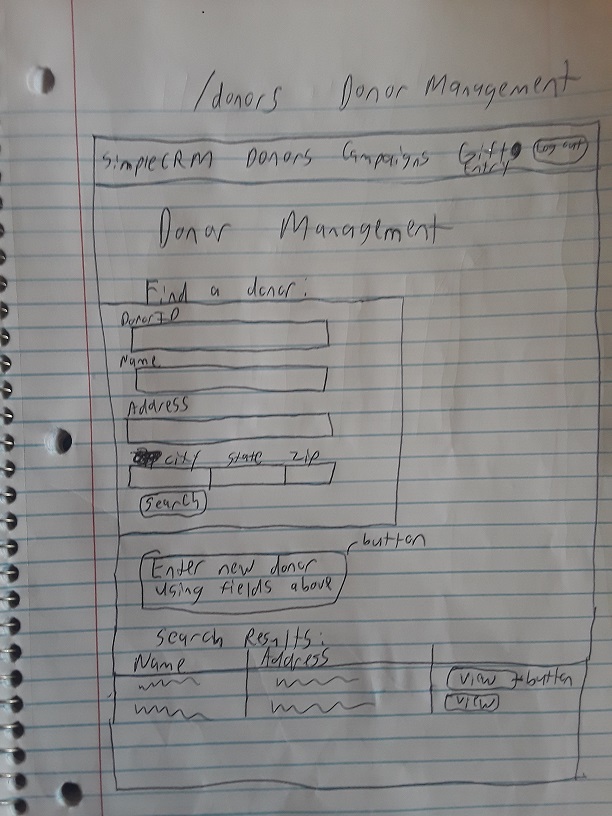 /donors Donor Management
SimpleCRM Donors Campaigns Gift Entry Log out
Donar Management
Find a donor:
Donor ID
Name
Address
city state zip
Search
button
Enter new donor
using fields above
Search Results:
Name Address
view button
view